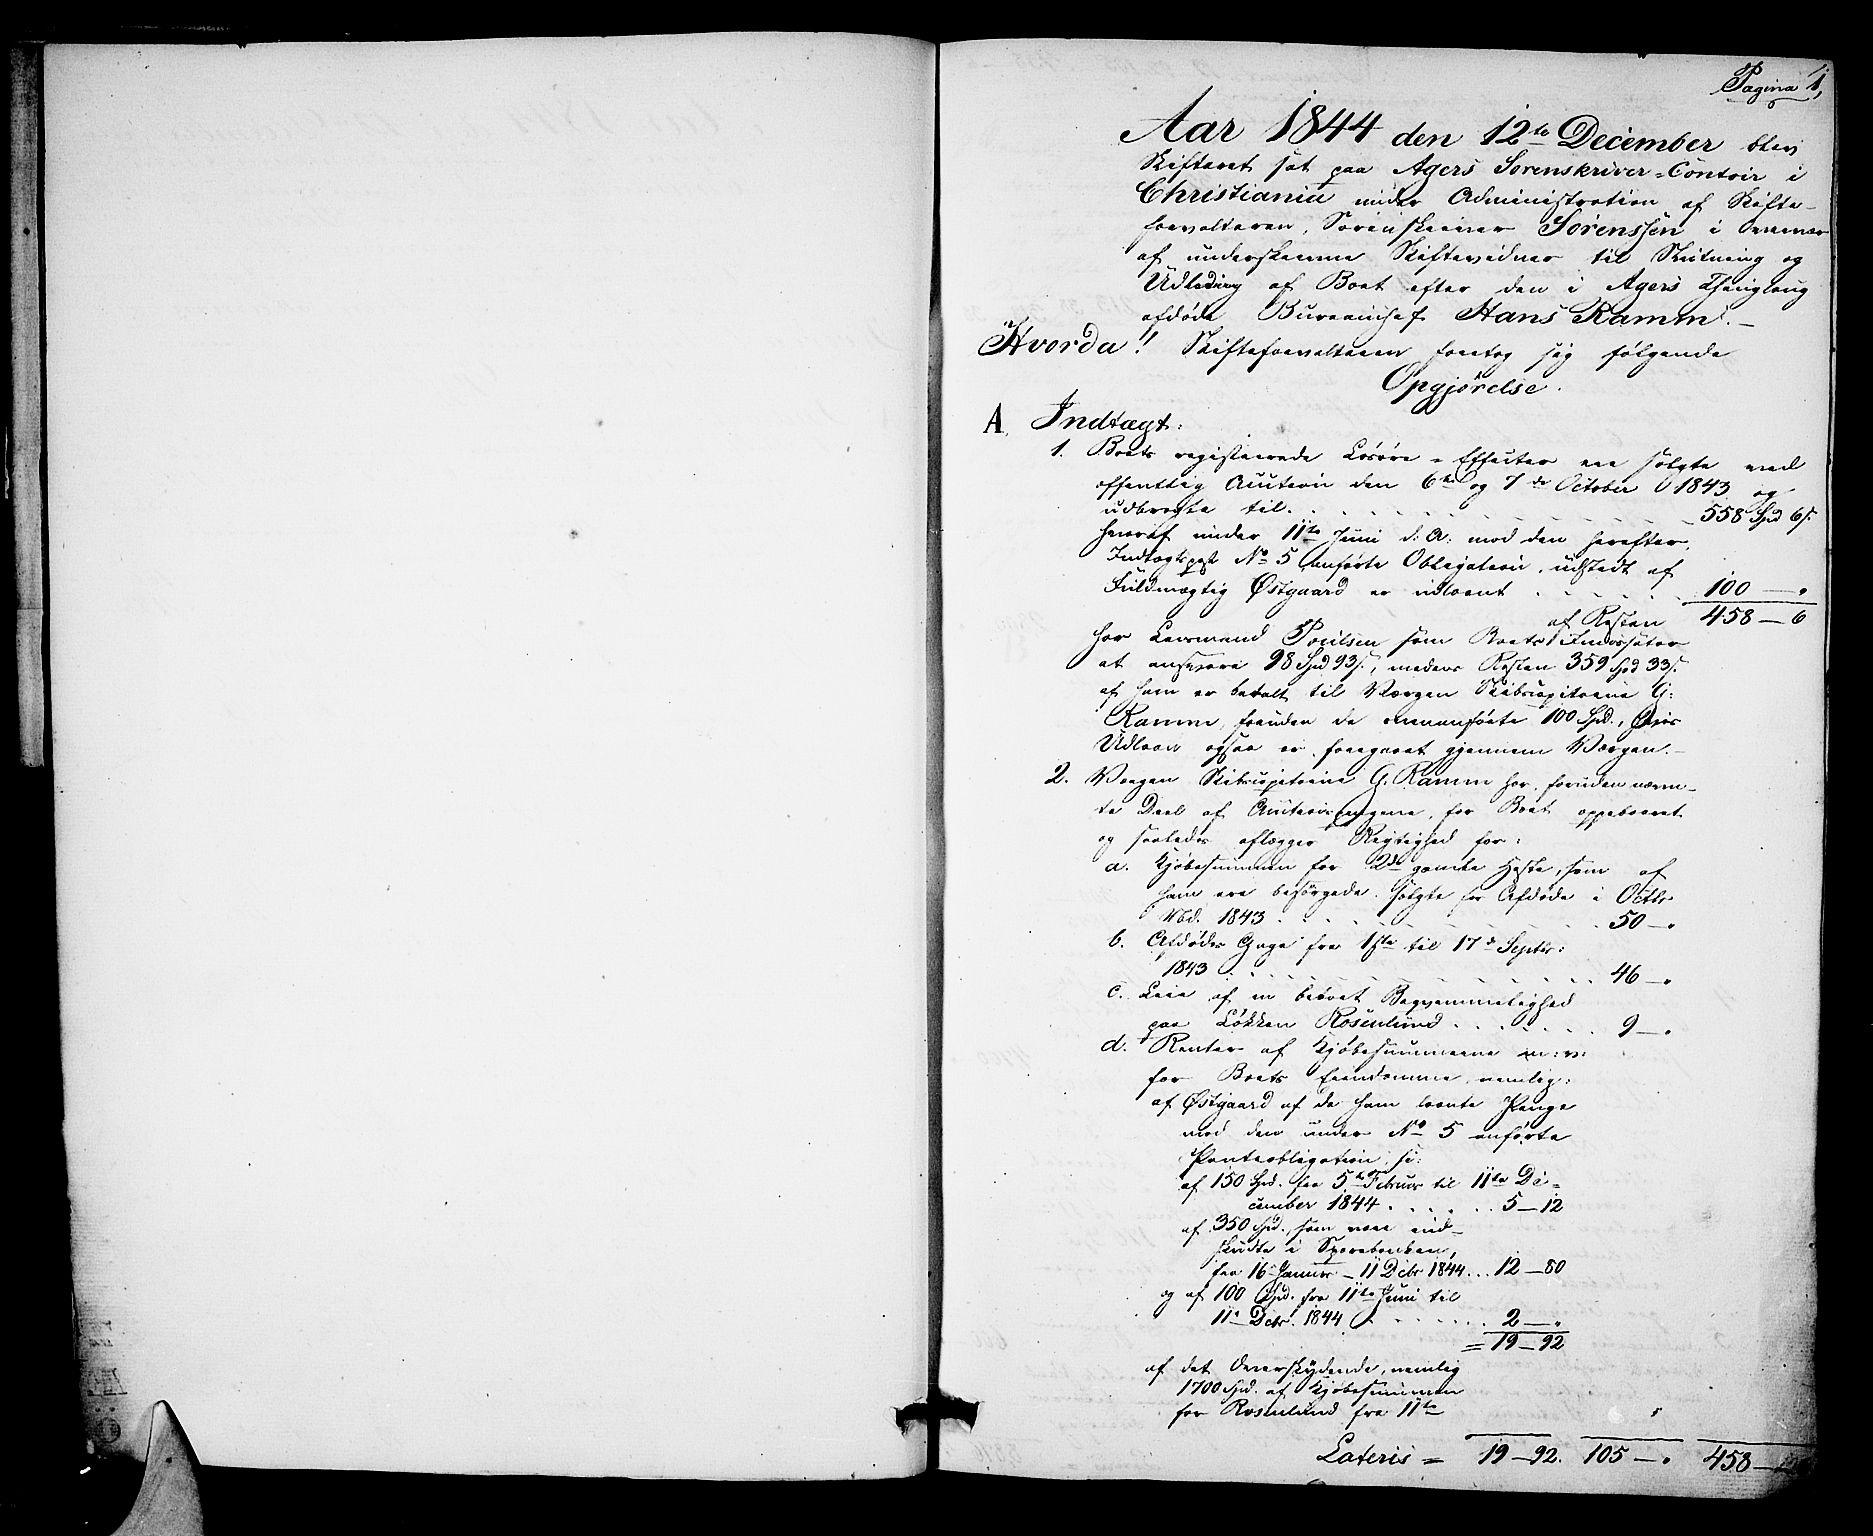 Pagina 1,
Aar 1844 den 12te December blev
Skifteret sat paa Agers Sorenskriver-Contoir i
Christiania under Administration af Skifte-
forvalteren, Sorenskriver Sörenssen i Overvær
af underskrevne Skiftevidner til Slutning og
Udlodning af Boet efter den i Agers Thinglaug
afdöde Bureauchef Hans Ramm. -
Hvorda! Skifteforvalteren foretog sig fölgende
Opgjörelse.
A Indtægt:
1. Boets registrerede Lösöre-Effecter ere solgte ved
offentlig Auction den 6te og 7de October 1843 og
udbragte til . . . . . 558 Spd 6 s.
heraf under 11te Juni d: A: mod den herefter,
Indtægtspost No 5 anförte Obligation, udstedt af
Fuldmægtig Östgaard er udlaant . . . . . 100 — "
af Resten 458 — 6
har Lensmand Poulsen som Boets Incassator
at ansvare 98 Spd 93 s., medens Resten 359 Spd 33 s.
af ham er betalt til Værgen Skibscapitaine G:
Ramm, foruden de ovenanförte 100 Spd., hvis
Udlaan ogsaa er foregaaet gjennem Værgen. -
2. Værgen Skibscapitaine G. Ramm har, foruden nævn-
te Deel af Auctionspengene, for Boet oppebaaret
og saaledes aflægger Rigtighed for:
a. Kjöbesummen for 2de gamle Heste, som af
ham ere besörgede solgte for Afdöde i Octbr
Md. 1843 . . . . . 50 — "
b. Afdödes Gage fra 1ste til 17de Septbr:
1843 . . . . . 46 — "
c. Leie af en beboet Beqvemmelighed
paa Lökken Rosenlund . . . . . 9 — "
d. Renter af Kjöbesummerne m: v:
for Boets Eiendomme, nemlig:
af Östgaard af de ham laante Penge
mod den under No 5 anförte
Panteobligation, :
af 150 Spd. fra 5te Februar til 11te De-
cember 1844 . . . . . 5 — 12
af 350 Spd., som vare ind-
skudte i Sparebanken,
fra 16 Januar — 11 Decbr 1844 . . . 12 — 80
og af 100 Spd. fra 11te Juni til
11te Decbr. 1844 . . . . . 2 — "
= 19 — 92
af det Overskydende, nemlig
1700 Spd. af Kjöbesummen
for Rosenlund fra 11te
Lateris = 19 — 92. 105 — " 458 —